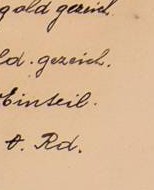 gold gezeich.
ld. gezeich.
Einteil.
t. Rd.